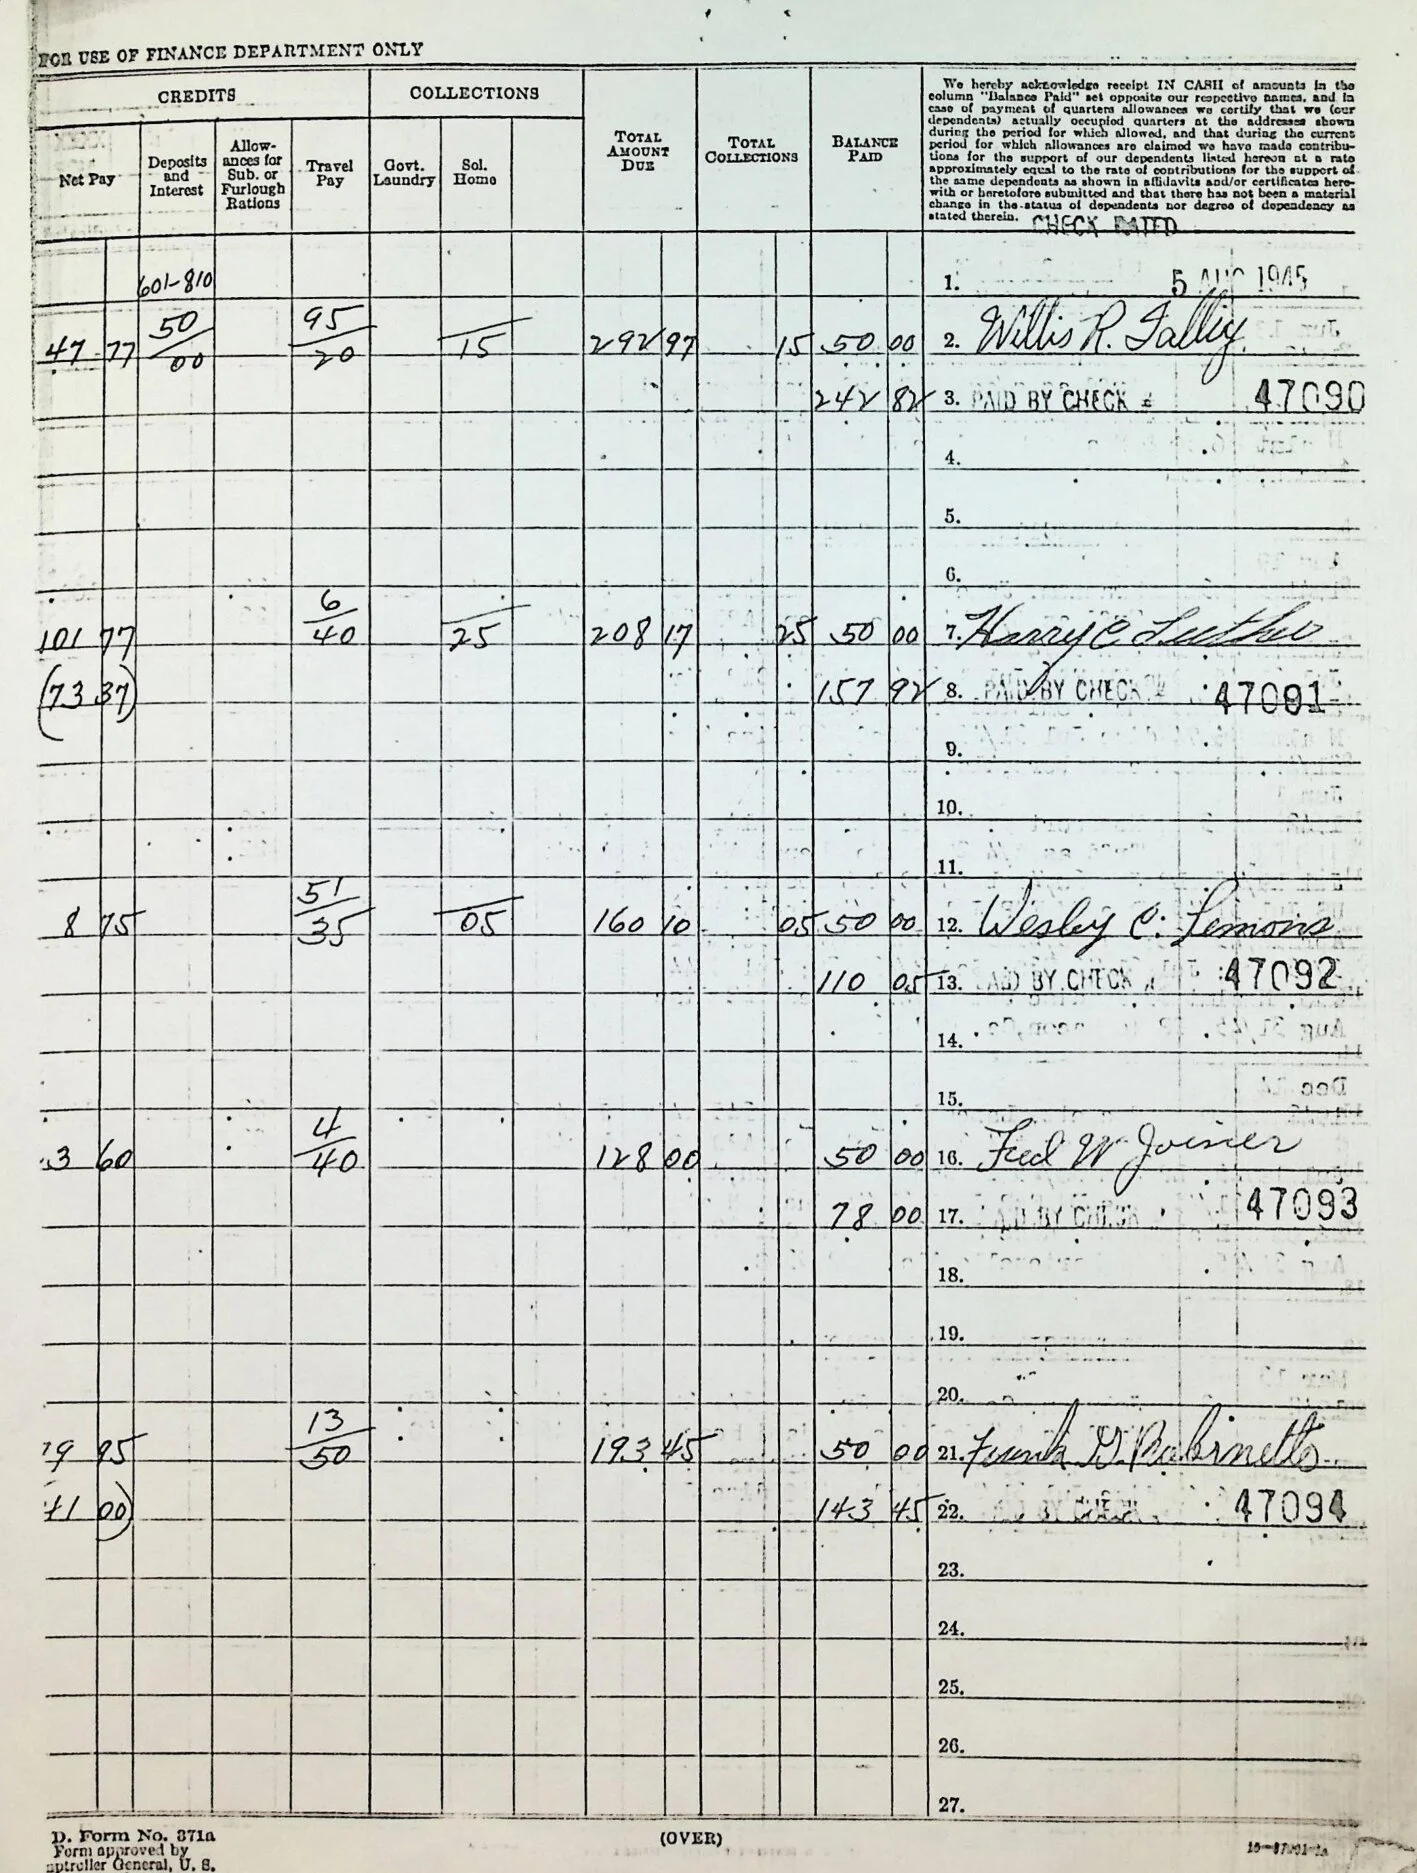 FOR USE OF FINANCE DEPARTMENT ONLY
CREDITS
COLLECTIONS
Net Pay
Deposits and Interest
Allow-ances for Sub. or Furlough Rations
Travel Pay
Govt. Laundry
Sol. Home
TOTAL AMOUNT DUE
TOTAL COLLECTIONS
BALANCE PAID
We hereby acknowledge receipt IN CASH of amounts in the
column "Balance Paid" set opposite our respective names, and in
case of payment of quarters allowances we certify that we (our
dependents) actually occupied quarters at the addresses shown
during the period for which allowed, and that during the current
period for which allowances are claimed we have made contribu-
tions for the support of our dependents listed hereon at a rate
approximately equal to the rate of contributions for the support of
the same dependents as shown in affidavits and/or certificates here-
with or heretofore submitted and that there has not been a material
change in the status of dependents nor degree of dependency as
stated therein. CHECK DATED
601-810 1. 5 AUG 1945
47 77 50/00 95/20 15 292 97 15 50 00 2. Willis R.
242 82 3. PAID BY CHECK # 47090
4.
5.
6.
101 77 6/40 25 208 17 25 50 00 7. Harry C Luther
(73 37) 157 92 8. PAID BY CHECK # 47091
9.
10.
11.
8 75 51/35 05 160 10 05 50 00 12. Wesley C. Lemons
110 05 13. PAID BY CHECK 47092
14.
15.
3 60 4/40 128 00 50 00 16. Fred W Joiner
78 00 17. PAID BY CHECK 47093
18.
19.
20.
79 95 13/50 193 45 50 00 21. Frank G. Robinette
41 00) 143 45 22. BY CHECK 47094
23.
24.
25.
26.
27.
D. Form No. 371a
Form approved by
ptroller General, U. S.
(OVER)